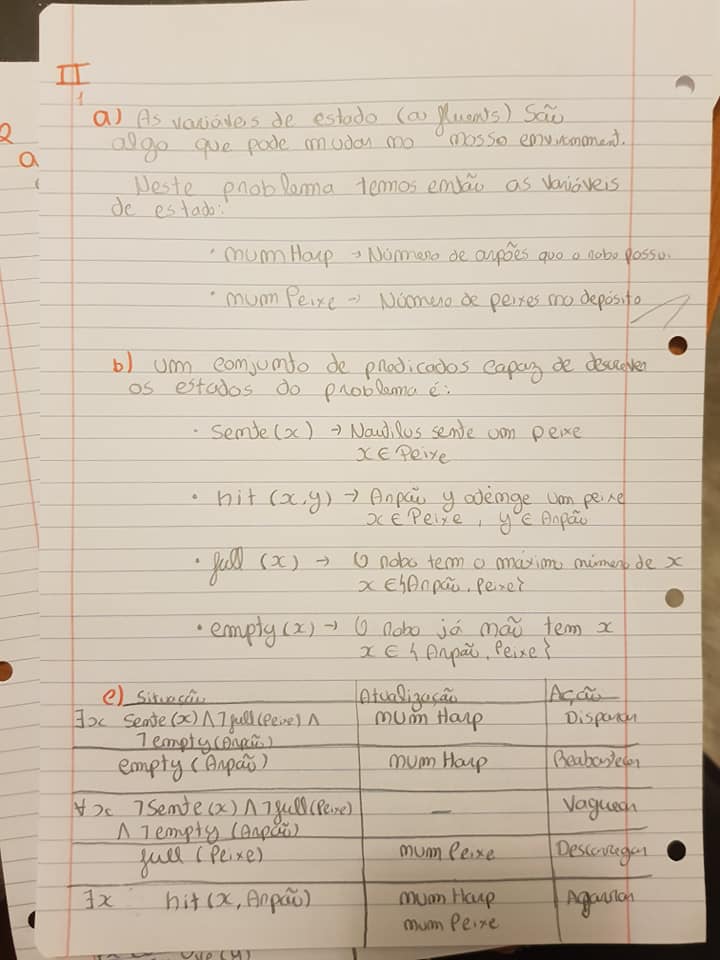 II
1
a) As variáveis de estado (ou fluents) São
algo que pode mudar no nosso environment.
Neste problema temos então as variáveis
de estado:
· numHarp → Número de arpões que o robo possui.
· numPeixe → Número de peixes no depósito
b) um conjunto de predicados capaz de descrever
os estados do problema é:
· Sente(x) → Nautilus sente um peixe
x ∈ Peixe
· hit (x,y) → Arpão y atinge um peixe
x ∈ Peixe, y ∈ Arpão
· full (x) → O robo tem o máximo número de x
x ∈ {Arpão, Peixe}
· empty(x) → O robo já não tem x
x ∈ {Arpão, Peixe}
c) Situação Atualização Ação
∃x Sente(x) ∧ ¬full(Peixe) ∧ num Harp Disparar
¬empty(Arpão)
empty (Arpão) num Harp Reabastecer
∀x ¬Sente(x) ∧ ¬full(Peixe) — Vaguear
∧ ¬empty (Arpão)
full (Peixe) num Peixe Descarregar
∃x hit(x, Arpão) num Harp Agarrar
num Peixe
2
a